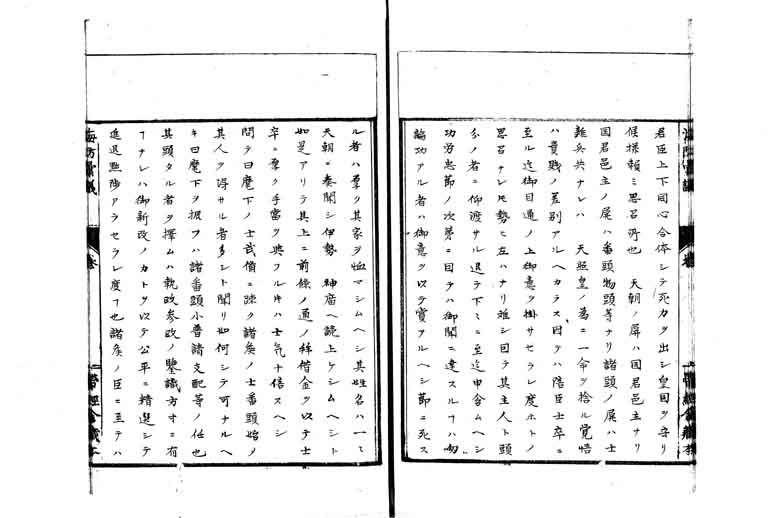 君臣上下同心合体シテ死力ヲ出シ皇国ヲ守リ
候様頼ミ思召所也　天朝ノ屏ハ国君邑主ナリ
国君邑主ノ屏ハ番頭物頭等ナリ諸頭ノ屏ハ士
雑兵共ナレハ　天照皇ノ為ニ一命ヲ捨ル覚悟
ハ貴賤ノ差別アルヘカラス因テハ陪臣士卒ニ
至ル迄御目通ノ上御意ヲ掛サセラレ度ホトノ
思召ナレ𪜈勢ニ左ハナリ難シ因テ其主人ト頭
分ノ者ニ仰渡サル退テ下々ニ至迄申含ムヘシ
功労忠節ノ次第ニ因テハ御聞ニ達スルヿハ勿
論功アル者ハ御意ヲ以テ賞アルヘシ節ニ死ス
ル者ハ厚ク其家ヲ恤マシムヘシ其姓名ハ一々
天朝ニ奏聞シ伊勢　神庿ヘ読上ケシムヘシト
如是アリテ其上ニ前條ノ通ノ拝借金ヲ以テ士
卒ニ厚ク手當ヲ與フル𪜈ハ士気十倍スヘシ
問テ曰麾下ノ士武備ニ疎ク諸矦ノ士番頭始ノ
其人ヲ得サル者多シト聞リ如何シテ可ナルヘ
キ曰麾下ヲ扱フハ諸番頭小普請支配等ノ任也
其頭タル者ヲ擇ムハ執政参政ノ鑒識方寸ニ有
ヿナレハ御新政ノカトヲ以テ公平ニ精選シテ
進退黜陟アラセラレ度ヿ也諸矦ノ臣ニ至テハ
海防彙議
巻